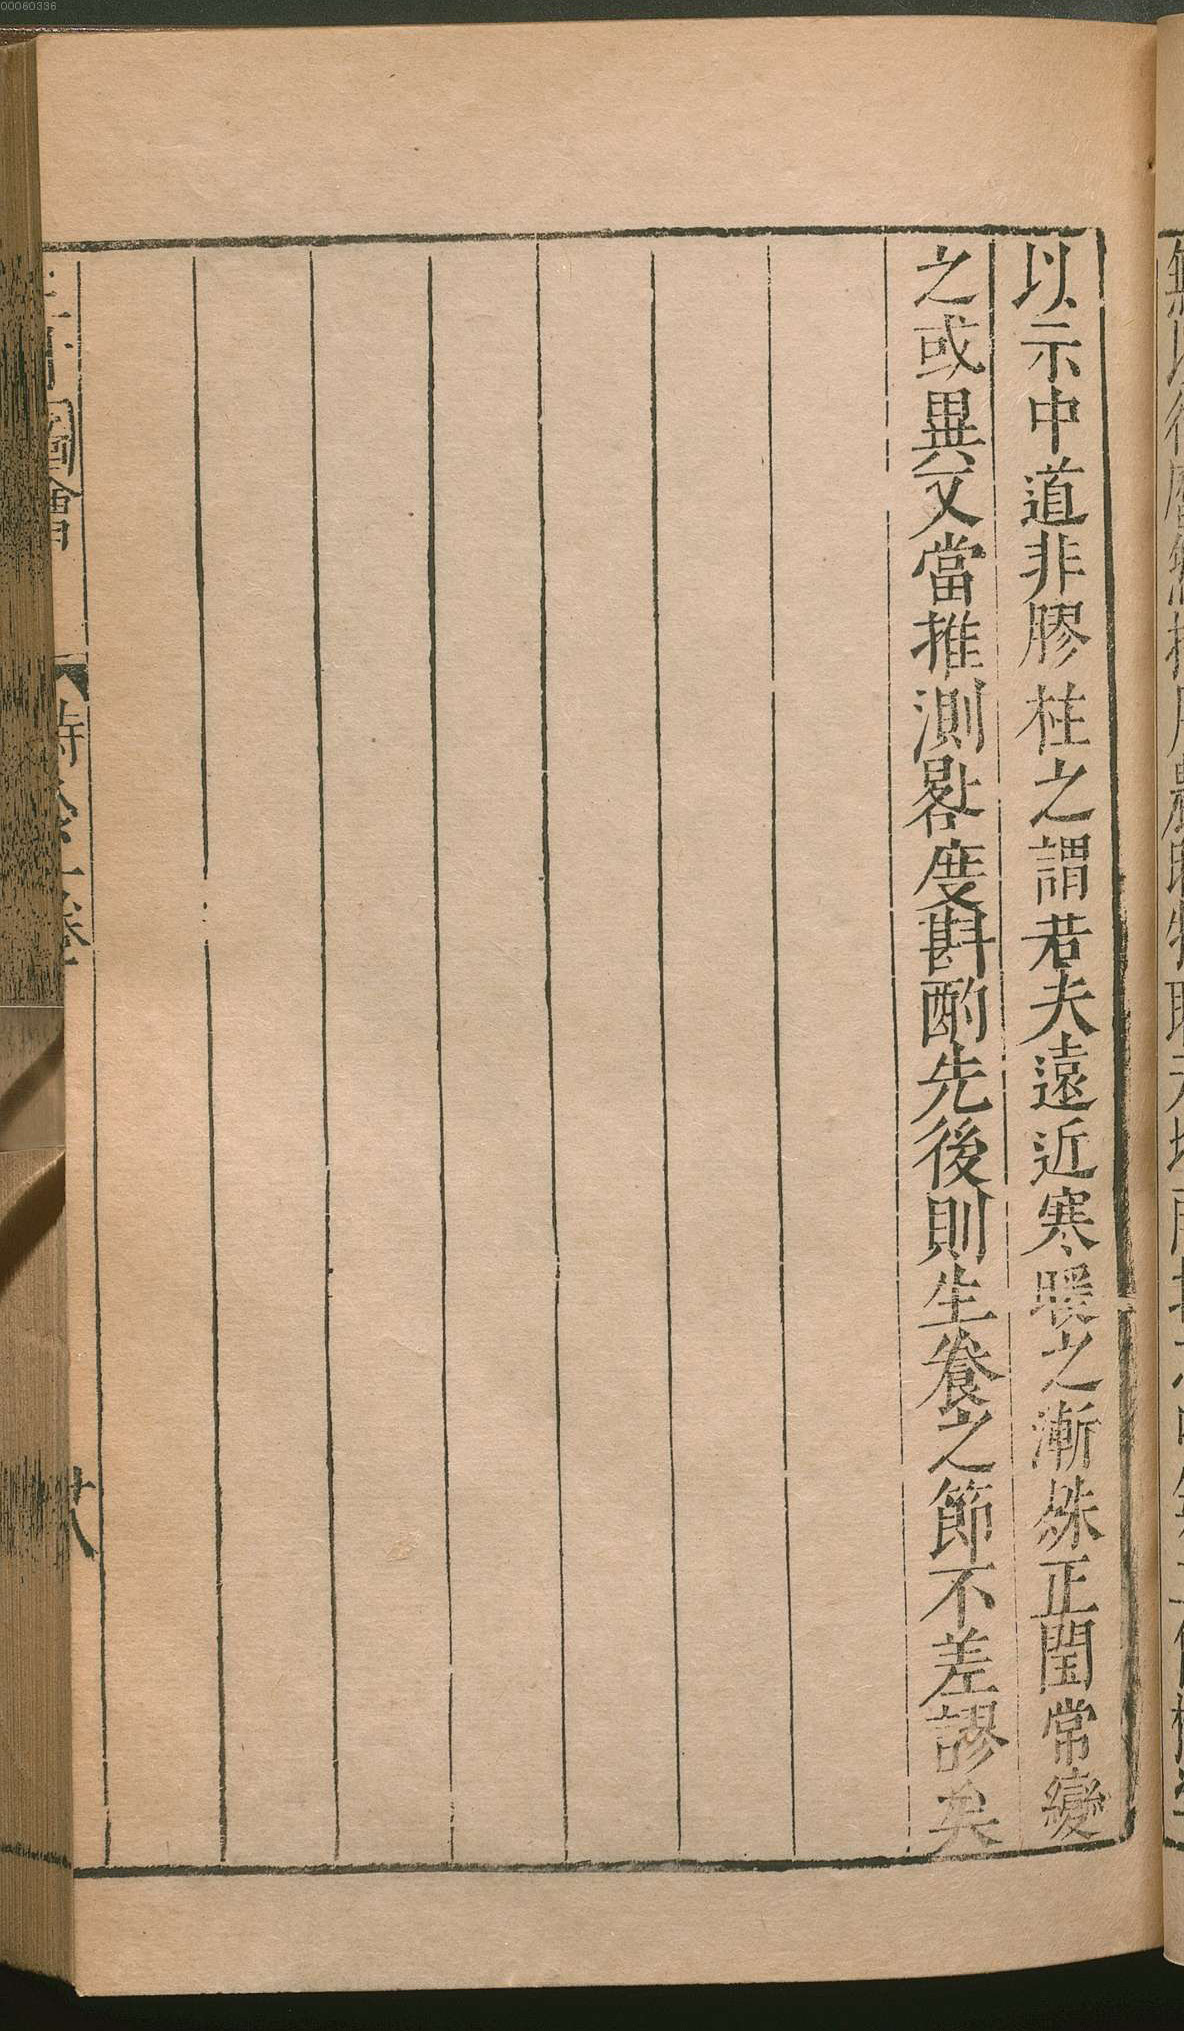 以示中道非膠柱之謂若夫遠近寒暖之漸殊正閏常變
之或異又當推測晷度斟酌先後則生養之節不差謬矣
圖會
時令一卷
廿八
00060336